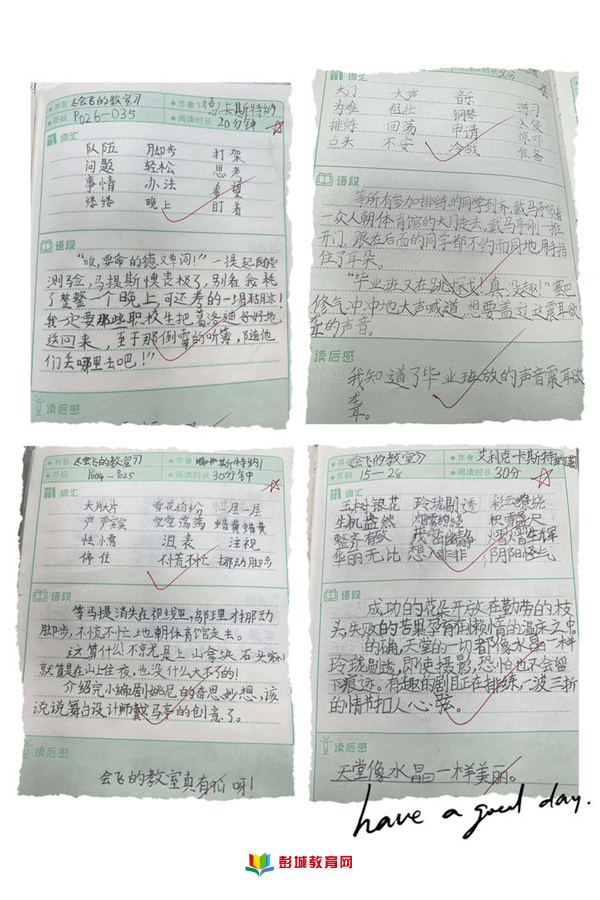 书名 《会飞的教室》 作者 (德)卡斯特纳
页码 P026-035 阅读时长 20分钟
词汇
队伍 脚步 打架
问题 轻松 思考
事情 办法 希望
缕缕 晚上 盯着
语段
“唉,要命的德文单词!”一提起
测验,马提斯懊丧极了,别看我耗
了整整一个晚上,可还考的一塌糊涂!
我一定要那些职校生把葛洛迪好好地
送回来,至于那倒霉的听簿,随他
们去哪里去吧!”
读后感
词汇
大门 大声 音乐
为难 祖壮 钢琴 练习
排练 回荡 申请
点头 不安 冷战 准备
语段
等所有参加排练的同学列齐,戴马亭领着
一众人朝体育馆的大门走去。戴马亭刚一推
开门,跟在后面的同学都不约而同地用手捂
住了耳朵。
“毕业班又在跳探戈!真没趣!”塞巴
修气冲冲地大声喊道,想要盖过这震耳欲
聋的声音。
读后感
我知道了毕业班放的声音震耳欲
聋。
书名 《会飞的教室》 作者 卡斯特纳
页码 P004-P025 阅读时长 30分钟
词汇
大片大片 雪花纷纷 一层一层
严严实实 空空荡荡 蜡黄蜡黄
快怜 沮丧 注视
停住 不慌不忙 挪动脚步
语段
等马提消失在视线里,邬理才挪动
脚步,不慌不忙地朝体育馆走去。
这算什么,不就是上山拿块石头嘛,
就算是在山上住夜,也没什么大不了的!
介绍完小编剧姚尼的奇思妙想,该
说说舞台设计师戴马亭的创意了。
读后感
会飞的教室真有趣呀!
书名 《会飞的教室》 作者 艾利克·卡斯特纳
页码 15-28 阅读时长 30分
词汇
玉树银花 玲珑剔透 彩云缭绕
生机盎然 烟雾缭绕 积雪盈尺
整齐有致 熠熠生辉
华丽无比 想入非非 阴阳怪气
语段
成功的花朵开放在勤劳的枝
头,失败的苦果孕育倒懒惰的温床之中。
的确,天堂的一切者像水晶一样
玲珑剔透,即使摄影,恐怕也不会留
下痕迹。有趣的剧目正在排练,一波三折
的情节扣人心弦。
读后感
天堂像水晶一样美丽。
have a good day.
彭城教育网